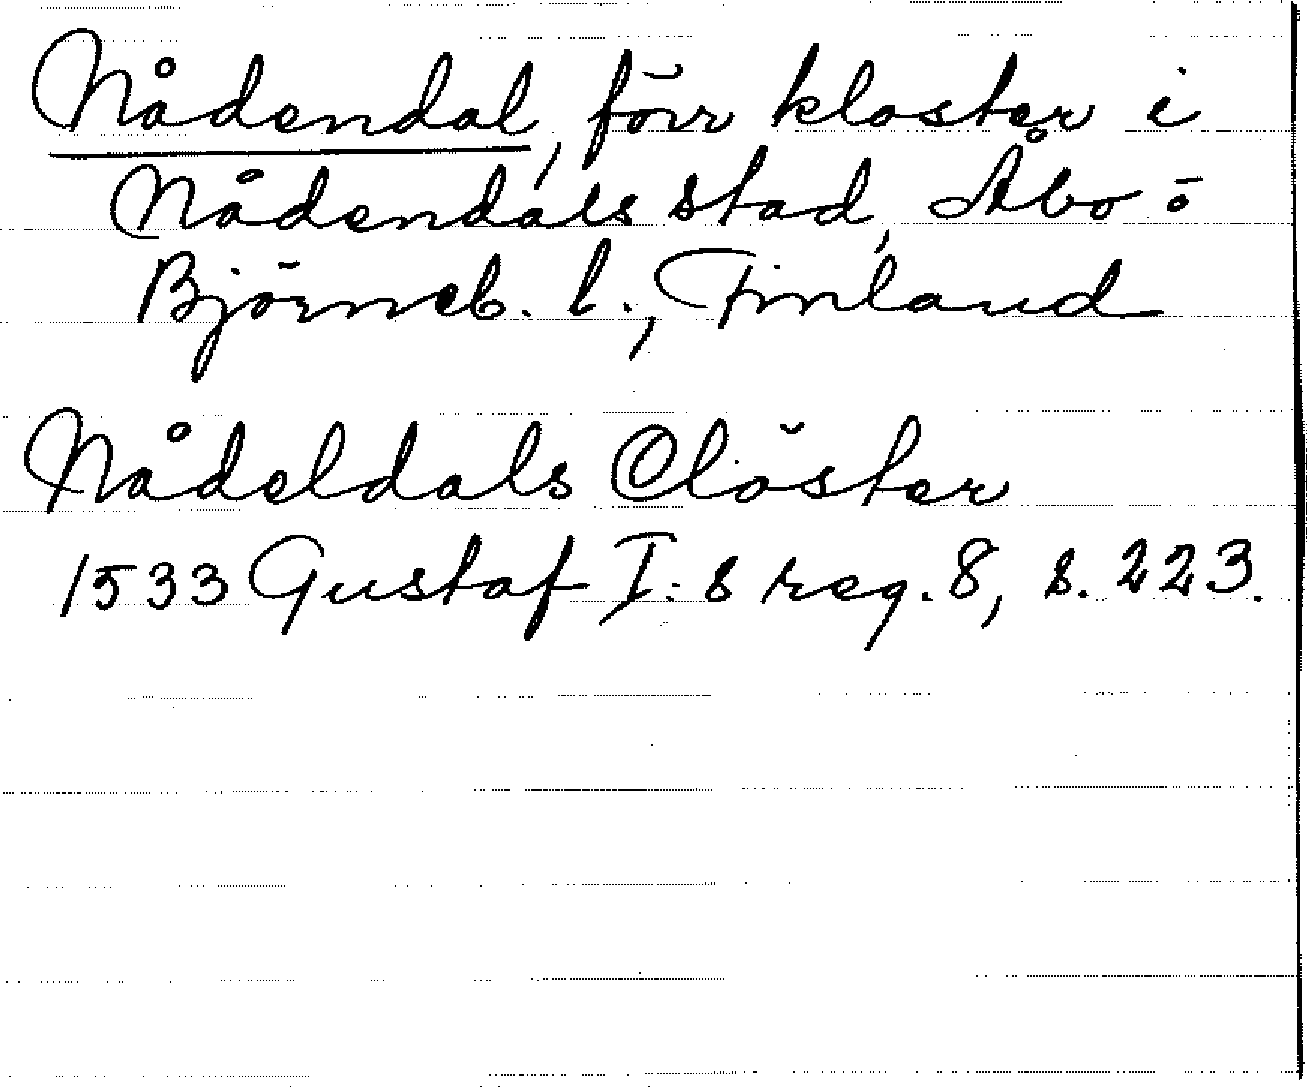 Nådendal, förr kloster i
Nådendals stad, Åbo ö
Björneb. l., Finland
Nådeldals Clöster
1533 Gustaf I:s reg. 8, s. 223.